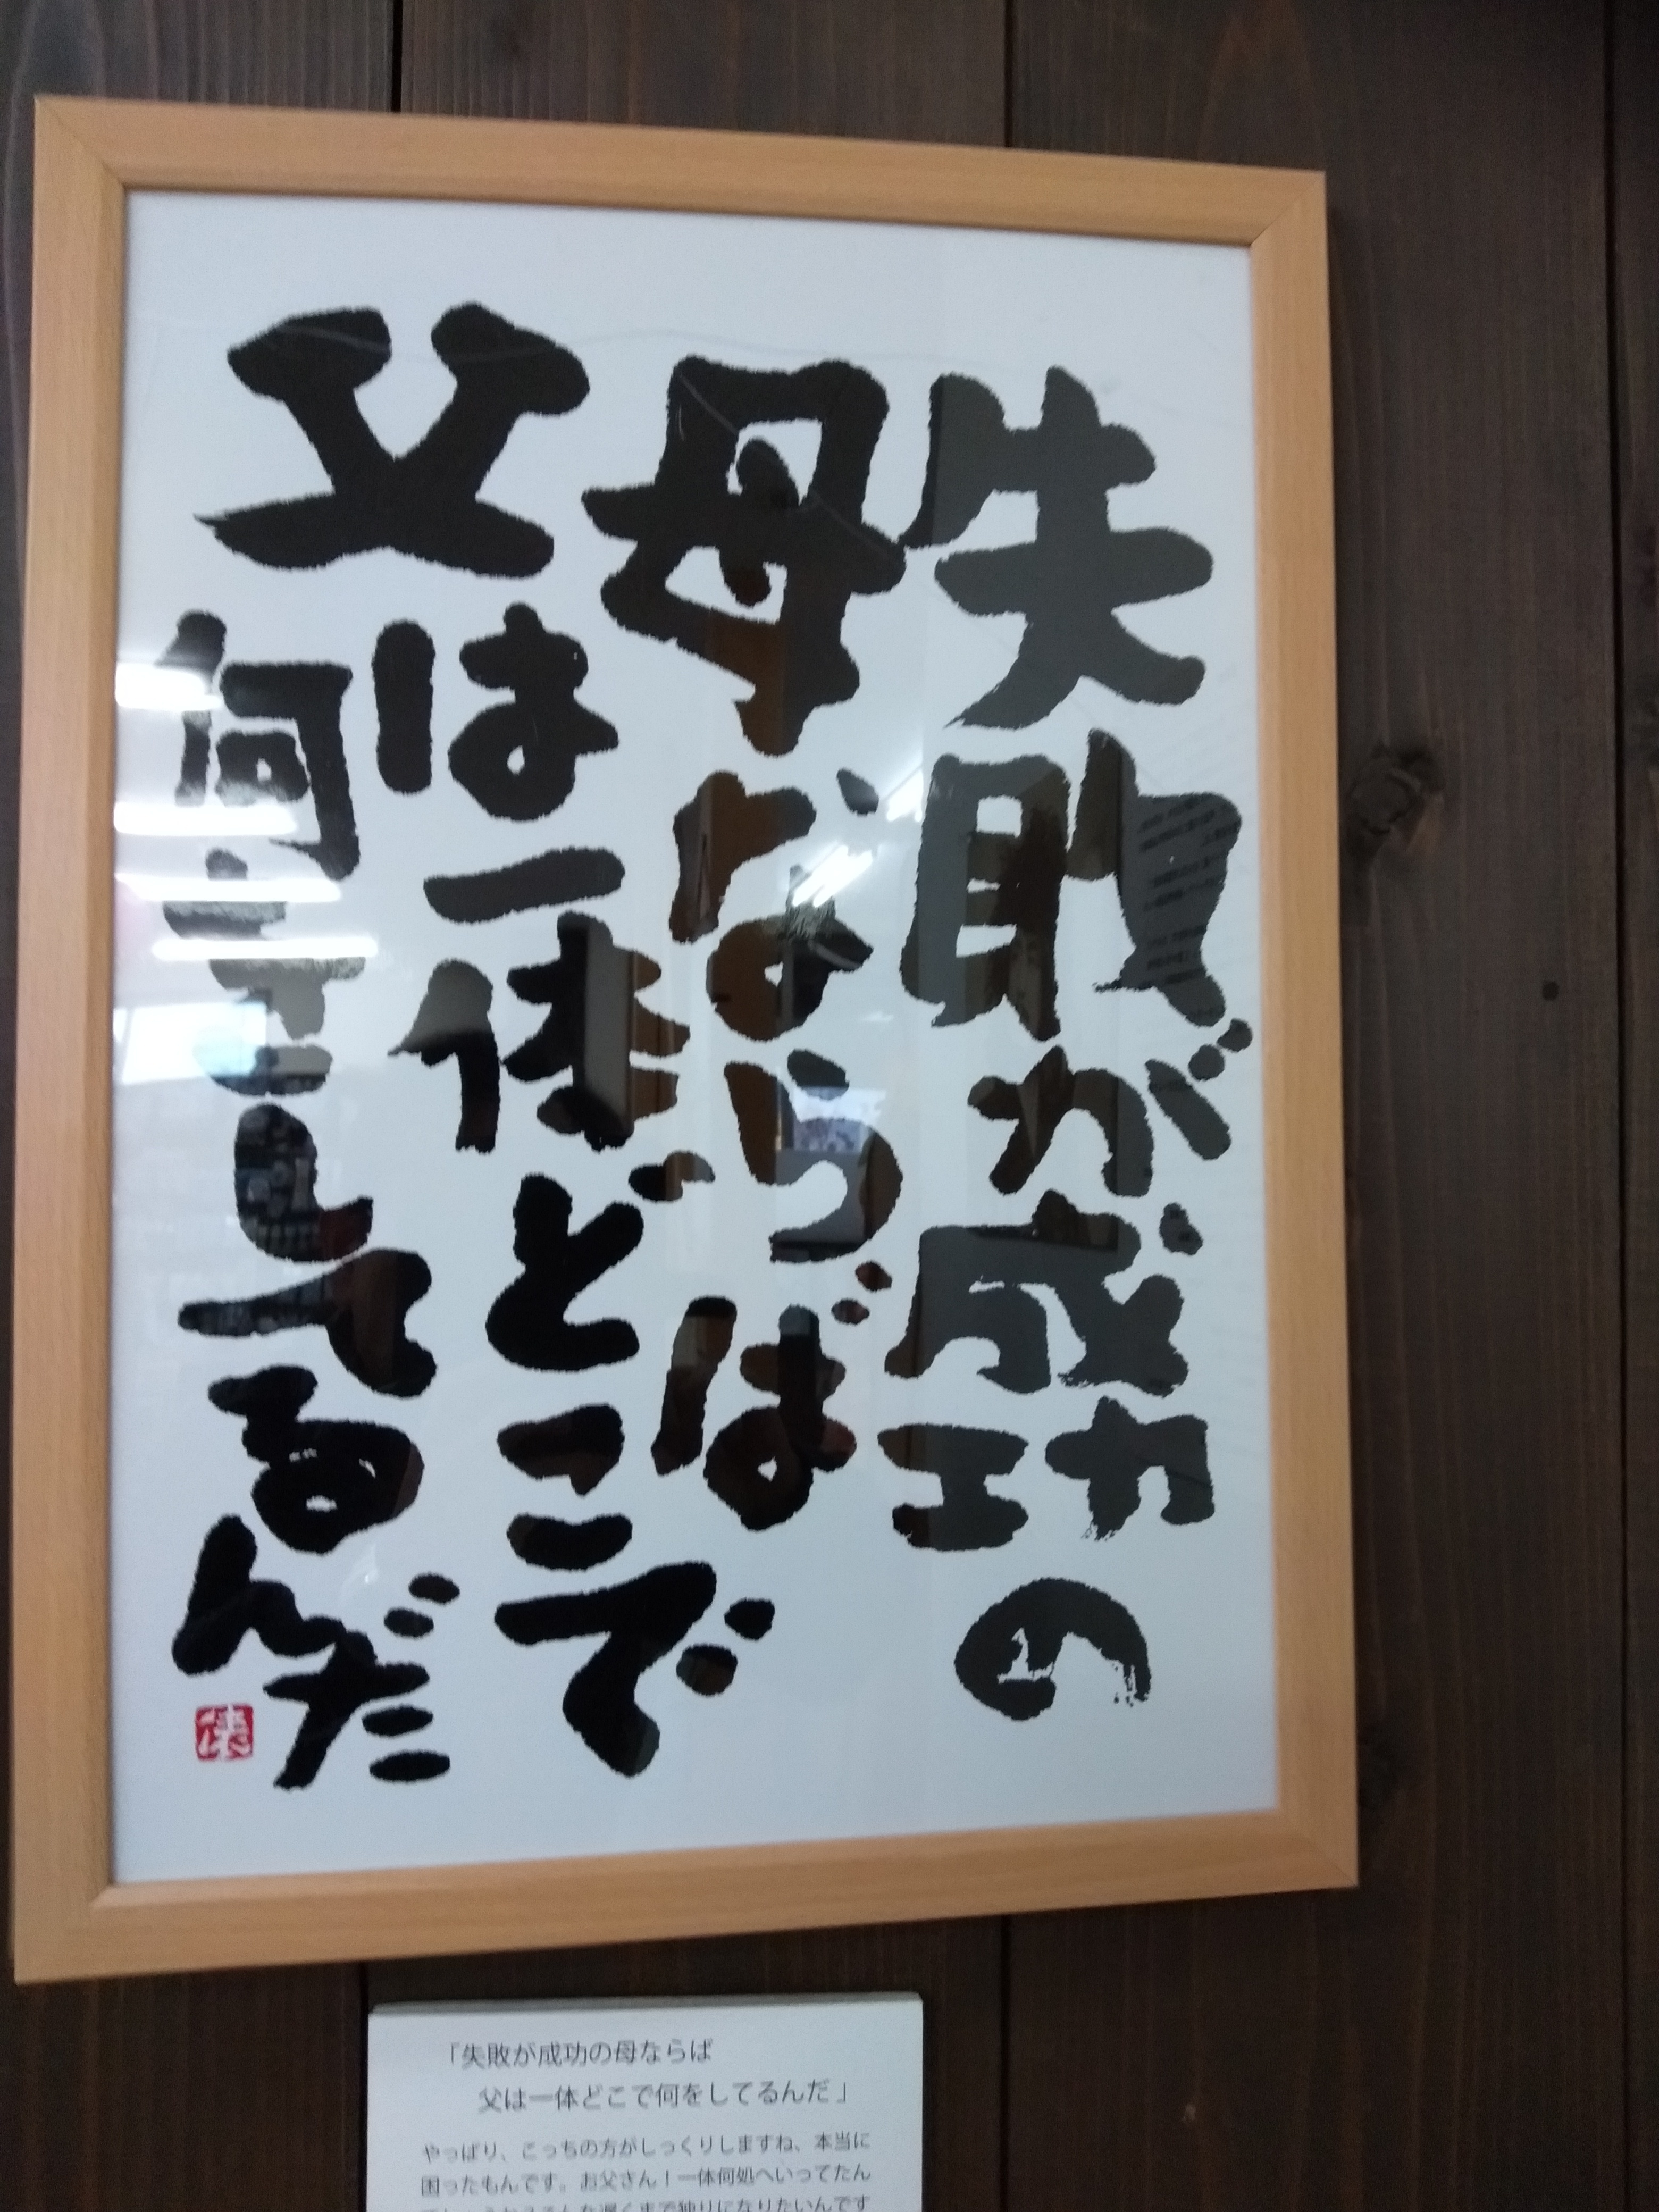 失敗が成功の
母ならば
父は一体どこで
何をしてるんだ
「失敗が成功の母ならば
父は一体どこで何をしてるんだ」
やっぱり、こっちの方がしっくりしますね、本当に
困ったもんです。お父さん！一体何処へいってたん